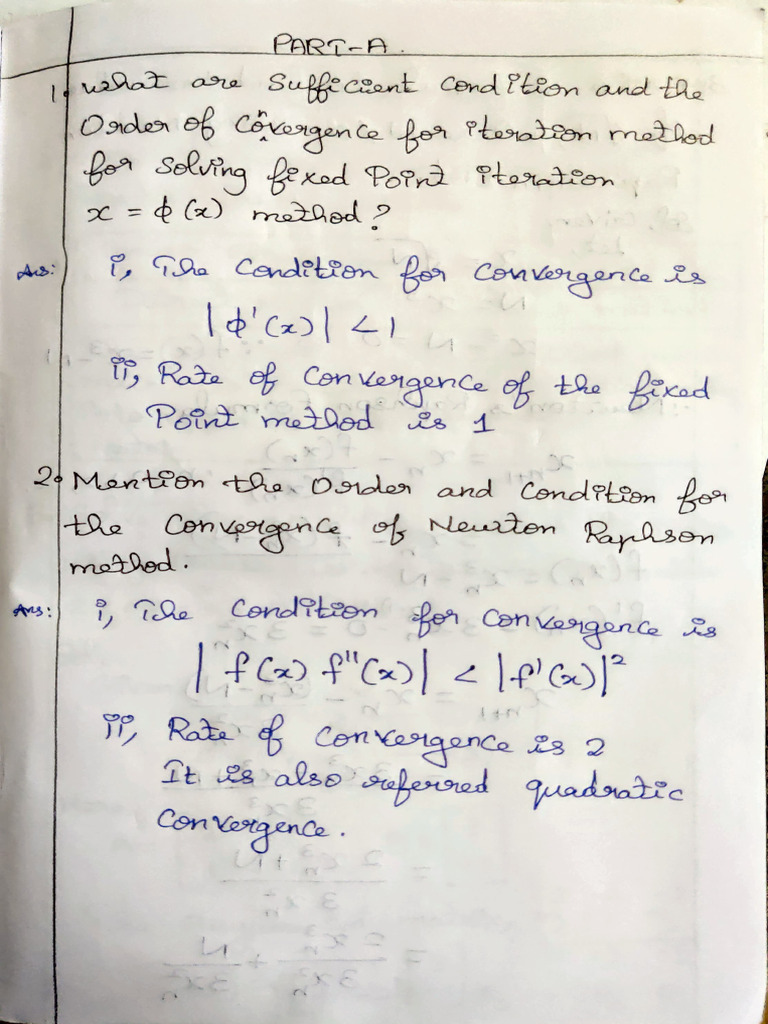 PART-A.
1. What are Sufficient Condition and the
Order of Convergence for iteration method
for Solving fixed Point iteration
x = ϕ(x) method?
Ans: i, The Condition for Convergence is
|ϕ'(x)| < 1
ii, Rate of Convergence of the fixed
Point method is 1
2. Mention the Order and Condition for
the Convergence of Newton Raphson
method.
Ans: i, The Condition for Convergence is
| f(x) f''(x)| < |f'(x)|²
ii, Rate of Convergence is 2
It is also referred quadratic
Convergence.